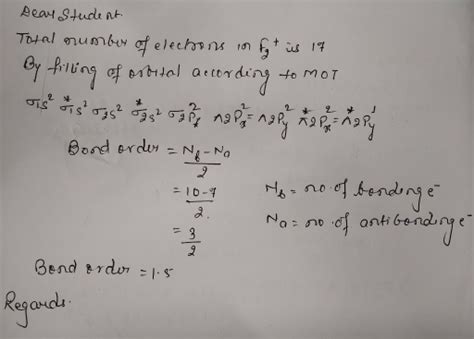 Dear Student
Total number of electrons in F₂⁺ is 17
By filling of orbital according to MOT
σ1s² σ*1s² σ2s² σ*2s² σ2Pz² π2Px² = π2Py² π*2Px² = π*2Py¹
Bond order = Nb - Na / 2
= 10-7 / 2. Nb = no of bonding e⁻
= 3 / 2 Na = no of antibonding e⁻
Bond order = 1.5
Regards.